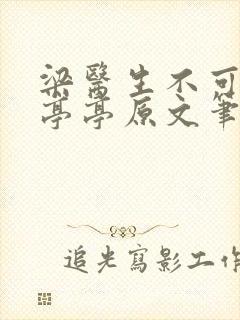 梁醫生不可
亭亭原文筆
追光寫影工作